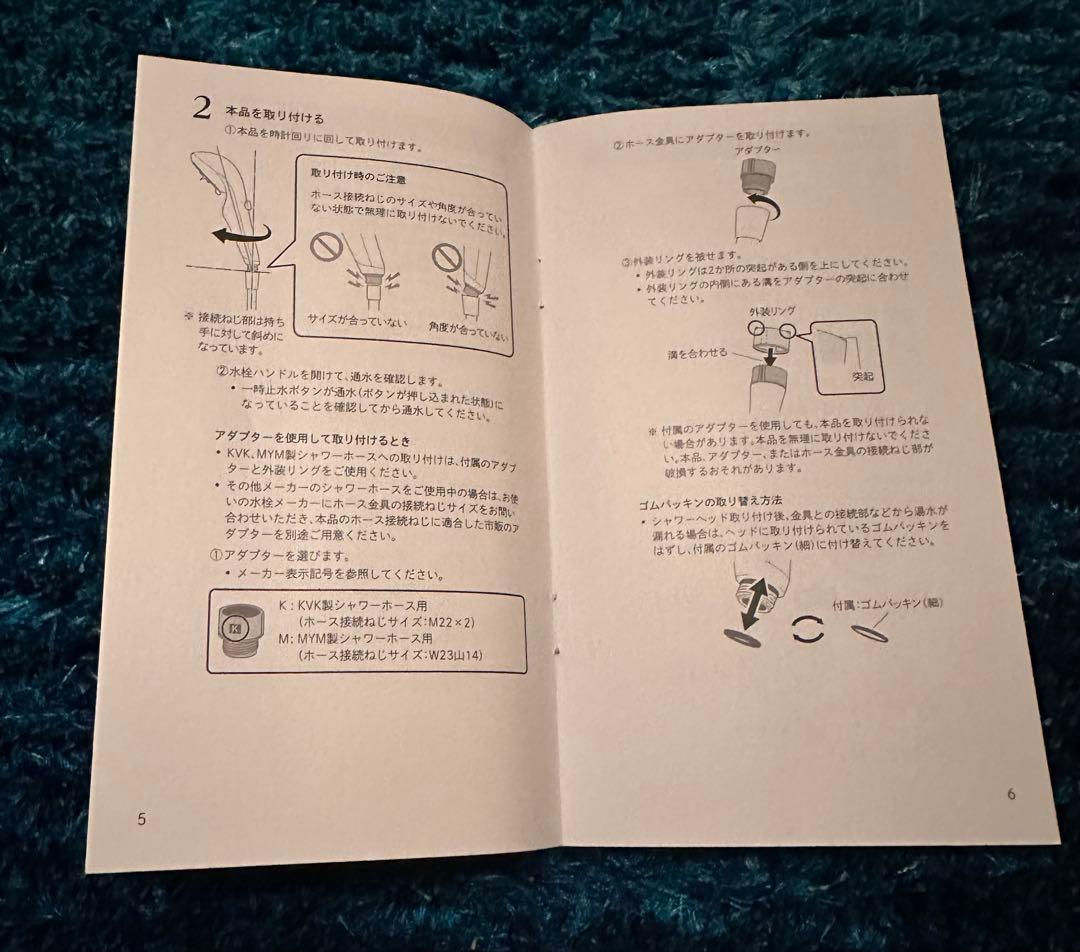 2 本品を取り付ける
①本品を時計回りに回して取り付けます。
取り付け時のご注意
ホース接続ねじのサイズや角度が合ってい
ない状態で無理に取り付けないでください。
サイズが合っていない
角度が合っていない
※ 接続ねじ部は持ち
手に対して斜めに
なっています。
②水栓ハンドルを開けて、通水を確認します。
• 一時止水ボタンが通水(ボタンが押し込まれた状態)に
なっていることを確認してから通水してください。
アダプターを使用して取り付けるとき
• KVK、MYM製シャワーホースへの取り付けは、付属のアダプ
ターと外装リングをご使用ください。
• その他メーカーのシャワーホースをご使用中の場合は、お使
いの水栓メーカーにホース金具の接続ねじサイズをお問い
合わせいただき、本品のホース接続ねじに適合した市販のア
ダプターを別途ご用意ください。
①アダプターを選びます。
• メーカー表示記号を参照してください。
K
K : KVK製シャワーホース用
(ホース接続ねじサイズ:M22×2)
M: MYM製シャワーホース用
(ホース接続ねじサイズ:W23山14)
5
②ホース金具にアダプターを取り付けます。
アダプター
③外装リングを被せます。
• 外装リングは2か所の突起がある側を上にしてください。
• 外装リングの内側にある溝をアダプターの突起に合わせ
てください。
外装リング
溝を合わせる
突起
※ 付属のアダプターを使用しても、本品を取り付けられな
い場合があります。本品を無理に取り付けないでくださ
い。本品、アダプター、またはホース金具の接続ねじ部が
破損するおそれがあります。
ゴムパッキンの取り替え方法
• シャワーヘッド取り付け後、金具との接続部などから湯水が
漏れる場合は、ヘッドに取り付けられているゴムパッキンを
はずし、付属のゴムパッキン(細)に付け替えてください。
付属:ゴムパッキン(細)
6